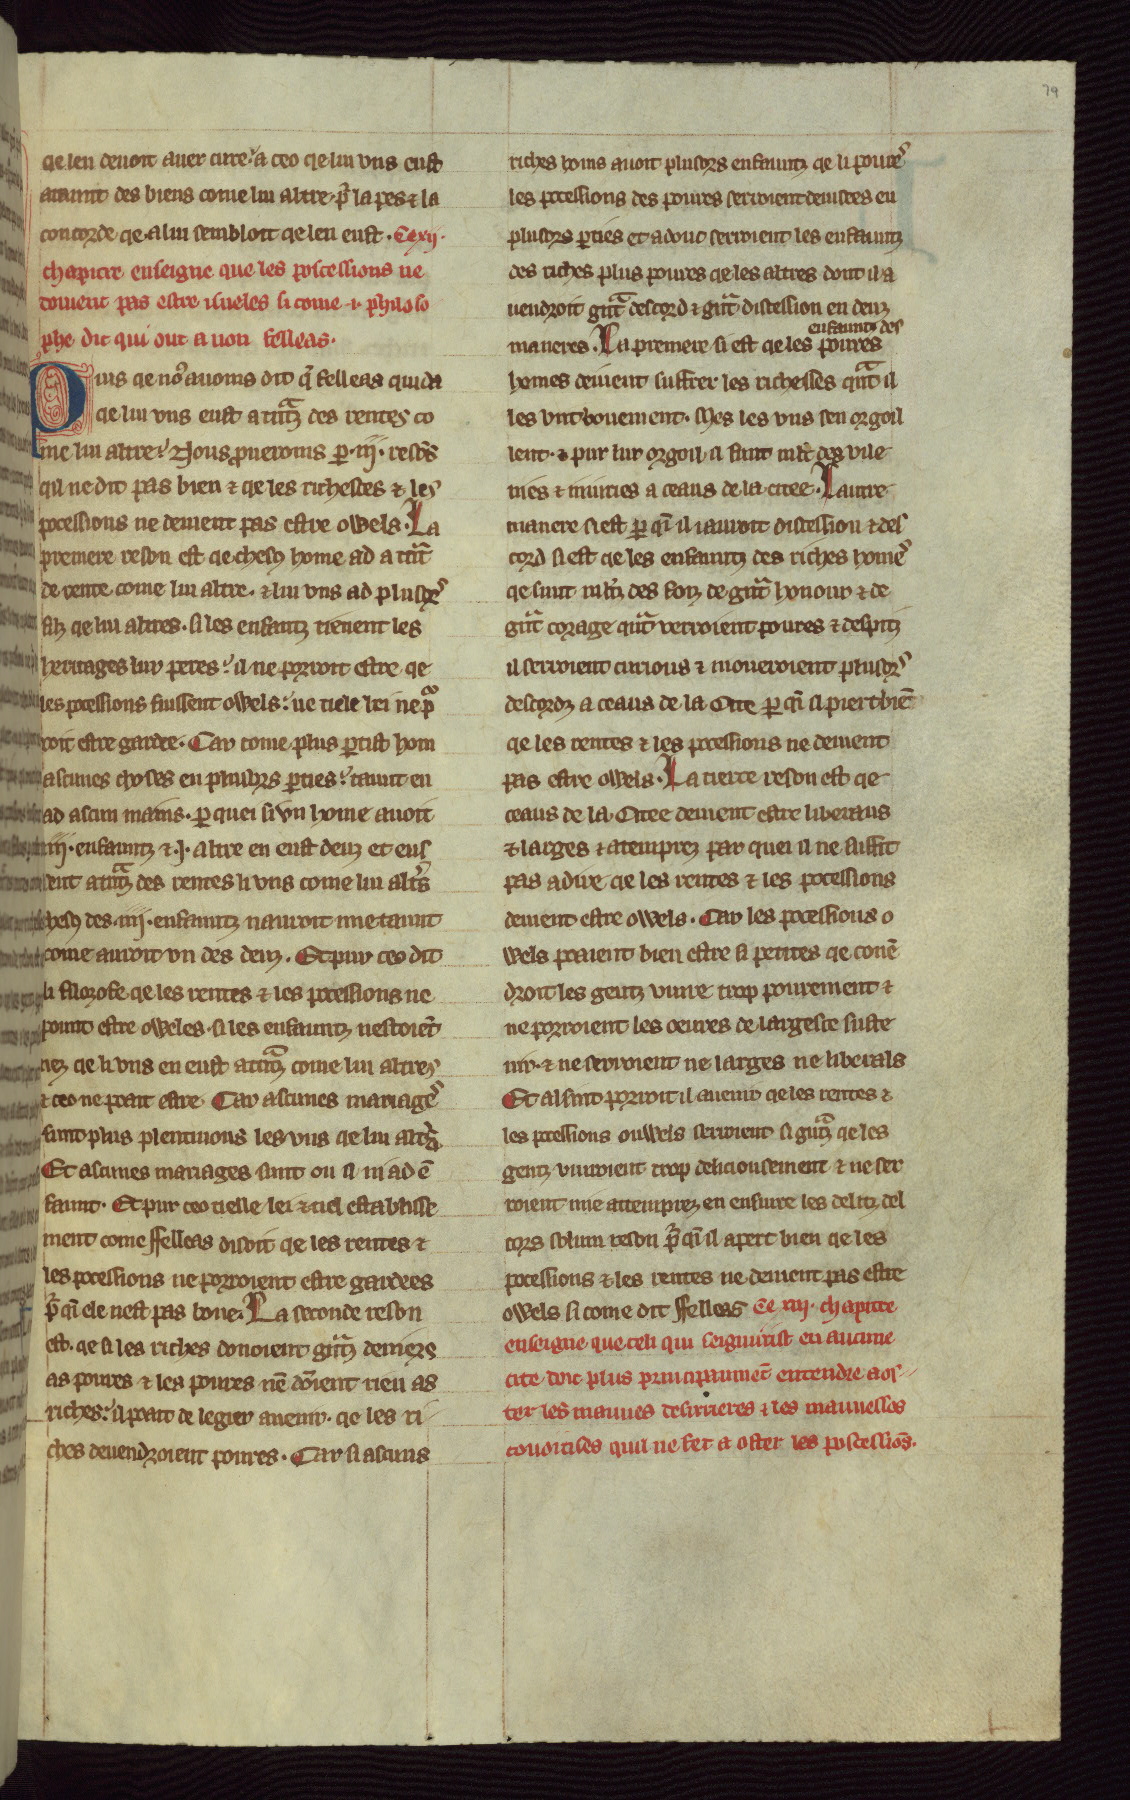 79
qe len deuoit auer cure? a ceo qe lui vns eust
ataunt des biens come lui altre· p̃ la pes ⁊ la
concorde qe a lui sembloit qe len eust · Ce xij·
chapitre enseigne que les poscessions ne
doiuent pas estre iueles si come ·i· philoso
phe dit qui out a non felleas·
Puis qe noꝰ auoms dit q̃ felleas quida
qe lui vns eust atũtz des rentes co
me lui altre? Nous proueroms ꝑ ·iij· resõs
qil ne dit pas bien ⁊ qe les richesces ⁊ les
possessions ne deiuent pas estre owels · La
premere reson est qe chesc̃ home ad a tũt
de rente come lui altre · ⁊ lui vns ad plusors
filz qe lui altres · si les enfauntz tienent les
heritages lur peres? il ne porroit estre qe
les possessions fuissent owels? ne tiele lei ne por
roit estre gardee · Car come plus ꝑtist hom
ascunes choses en plusors ꝑties? taunt en
ad ascun mains · ꝑ quei si vn home auoit
iiij · enfauntz ⁊ ·j· altre en eust deuz et eus
sent atũtz des rentes li vns come lui altrs
chesc̃ des ·iiij· enfauntz nauroit mie taunt
come auroit vn des deuz · Et pur ceo dit
li filozofe qe les rentes ⁊ les possessions ne
point estre oweles · si les enfauntz nestoiẽt
nez qe li vns en eust atũtz come lui altres
⁊ ceo ne poait estre · Car ascunes mariages
sunt plus plentiuous les vns qe lui altr̃s
Et ascunes mariages sunt ou il ni ad ẽ
faunt · Et pur ceo tielle lei ⁊ tiel establisse
ment come ffelleas disoit qe les rentes ⁊
les possessions ne porroient estre gardees
p̃ qi ele nest pas bone · La seconde reson
est · qe si les riches donoient gũtz deniers
as poures ⁊ les poures nẽ dõient rien as
riches? il poait de legier auenir · qe les ri
ches deuendroient poures · Car si ascuns
riches homs auoit plusors enfauntz qe li poures
les possessions des poures serroient deuisees en
plusors ꝑties et adonc serroient les enfauntz
des riches plus poures qe les altres dont il a
uendroit gũt descord ⁊ gũt discession en deuz
enfauntz des
maneres · La premere si est qe les poures
homes deiuent suffrer les richesses qũt il
les vnt bonement · Mes les vns sen orgoil
lent · ⁊ pur lur orgoil il funt mlt des vile
nies ⁊ iniuries a ceaus de la citee · Lautre
manere si est ꝑ qi il iauroit discession ⁊ des
cord si est qe les enfauntz des riches homes
qe sunt mlt des foiz de gũt honour ⁊ de
gũt corage qũt verroient poures ⁊ despitz
il serroient curious ⁊ moueroient plusors
descordz a ceaus de la Cite ꝑ qi il piert biẽ
qe les rentes ⁊ les possessions ne deiuent
pas estre owels · La tierce reson est qe
ceaus de la Citee deiuent estre liberaus
⁊ larges ⁊ atemprez par quei il ne suffit
pas a dire qe les rentes ⁊ les possessions
deiuent estre owels · Car les possessions o
wels poaient bien estre si petites qe couẽ
droit les gentz viure trop pourement ⁊
ne porroient les oeures de largesce suste
nir · ⁊ ne serroient ne larges ne liberals
Et alsint porroit il auenir qe les rentes ⁊
les possessions ouwels serroient si gũtz qe les
gentz viuroient trop deliciousement ⁊ ne ser
roient mie attemprez en ensiure les delitz del
cors solum reson p̃ qi il apert bien qe les
possessions ⁊ les rentes ne deiuent pas estre
owels si come dit ffelleas Ce xiij · chapitre
enseigne que celi qui seignurist en aucune
cite doit plus principaumẽt entendre a os
ter les mauues desirrieres ⁊ les mauuesses
couoitises quil ne fet a oster les poscessiõs·